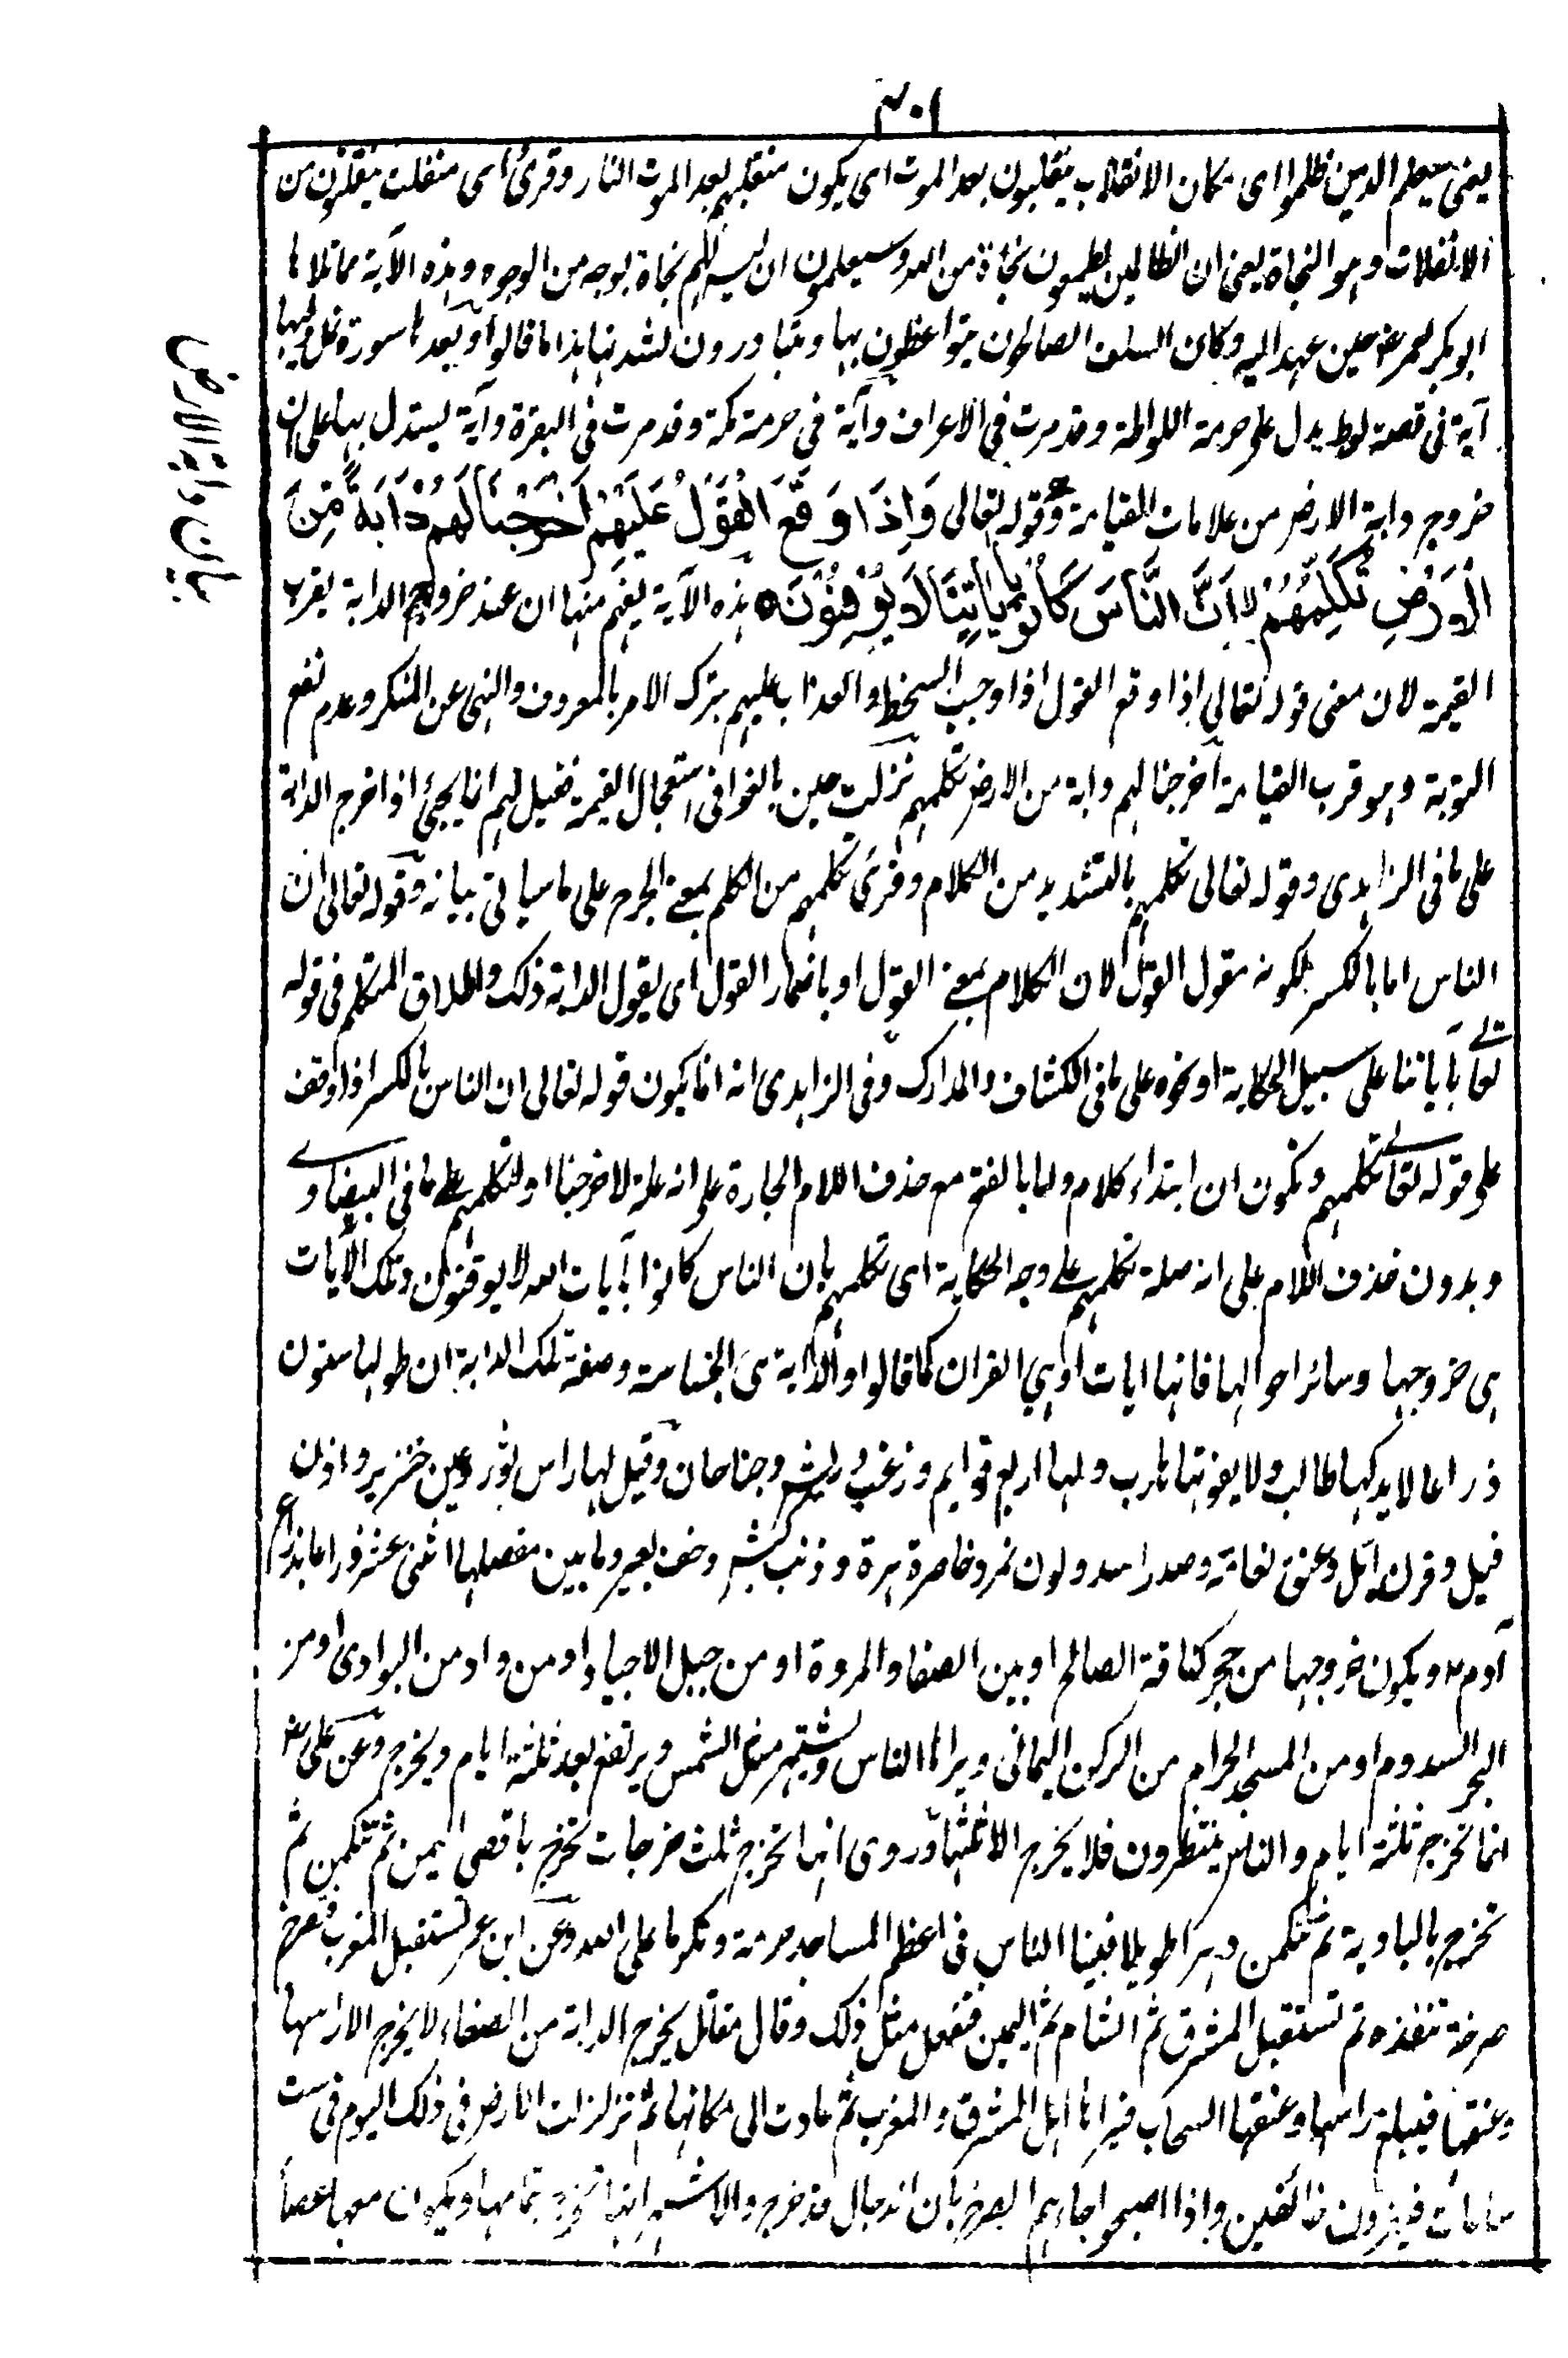 ٤٠١
يعنى سيعلم الذين ظلموا اى مكان الانقلاب ينقلبون بعد الموت اى يكون منقلبهم بعد الموت النار وقرئ اى منفلت ينفلتون من
الانفلات وهو النجاة يعنى ان الظالمين يطمعون نجاة من الله وسيعلمون ان ليس لهم نجاة بوجه من الوجوه وهذه الآية مما تلاها
ابو بكر لعمر رض حين عهد اليه وكان السلف الصالحون يتواعظون بها ويتبادرون لشدتها هذا ما قالوا وبعدها سورة نمل وفيها
آية فى قصة لوط يدل على حرمة اللواطة وقد مرت فى الاعراف وآية فى حرمة مكة وقد مرت فى البقرة وآية يستدل بها على ان
خروج دابة الارض من علامات القيامة وقوله تعالى وَاِذَا وَقَعَ الْقَوْلُ عَلَيْهِمْ اَخْرَجْنَا لَهُمْ دَابَّةً مِّنَ
الْاَرْضِ تُكَلِّمُهُمْ لا اَنَّ النَّاسَ كَانُوْا بِاٰيَاتِنَا لَا يُوْقِنُوْنَ ه هذه الآية يفهم منها ان عند خروج الدابة يقرب
القيمة لان معنى قوله تعالى اذا وقع القول اذا وجب السخط والعذاب عليهم بترك الامر بالمعروف والنهى عن المنكر وعدم نفع
التوبة وهو قرب القيامة اخرجنا لهم دابة من الارض تكلمهم نزلت حين بالغوا فى استعجال القيمة فقيل لهم انما يجئ اذا خرج الدابة
على ما فى الزاهدى وقوله تعالى تكلمهم بالتشديد من الكلام وقرئ تكلمهم من الكلم بمعنى الجرح على ما سياتى بيانه وقوله تعالى ان
الناس اما بالكسر لكونه مقول القول لان الكلام بمعنى القول او باضمار القول اى يقول الدابة ذلك واطلاق المتكلم فى قوله
تعالى بآياتنا على سبيل الحكاية او نحوه على ما فى الكشاف والمدارك وفى الزاهدى انه انما يكون قوله تعالى ان الناس بالكسر اذا وقف
على قوله تعالى تكلمهم ويكون ان ابتداء كلام واما بالفتح مع حذف اللام الجارة على انه علة لاخرجنا او لتكلمهم على ما فى البيضاوى
وبدون حذف اللام على انه صلة تكلمهم على وجه الحكاية اى تكلمهم بان الناس كانوا بآيات الله لا يوقنون وتلك الآيات
هى خروجها وسائر احوالها فانها ايات او هى القران كما قالوا والدابة هى الجساسة وصفة تلك الدابة ان طولها ستون
ذراعا لا يدركها طالب ولا يفوتها هارب ولها اربع قوايم وزغب وريش وجناحان وقيل لها راس ثور وعين خنزير واذن
فيل وقرن ايل وعنق نعامة وصدر اسد ولون نمر وخاصرة هرة وذنب كبش وخف بعير وما بين مفصلها اثنى عشر ذراعا بذراع
آدم ع ويكون خروجها من حجر كناقة الصالح او بين الصفا والمروة او من جبل الاجياد او من واد من البوادى او من
البحر السدوم او من المسجد الحرام من الركن اليمانى ويراها الناس ويشتهر مثل الشمس ويرتفع بعد ثلثة ايام ويخرج وعن على رض
انما تخرج ثلثة ايام والناس ينتظرون فلا يخرج الا ثلثها وروى انها تخرج ثلث خرجات تخرج باقصى اليمن ثم تتكمن ثم
تخرج بالبادية ثم تتكمن دهرا طويلا فبينا الناس فى اعظم المساجد حرمة وتكرما على الله وعن ابن عمر تستقبل المغرب فتصرخ
صرخة تنفذه ثم تستقبل المشرق ثم الشام ثم اليمن فتفعل مثل ذلك وقال مقاتل يخرج الدابة من الصفاء لا يخرج الا راسها
وعنقها فيبلغ راسها وعنقها السحاب فيراها اهل المشرق والمغرب ثم عادت الى مكانها ثم تزلزلت الارض فى ذلك اليوم فى ست
ساعات فيفزعون خائفين واذا اصبحوا جاءهم الصرخ بان الدجال قد خرج والاشهر انها تخرج بتمامها ويكون معها عصا
بيان دابة الارض